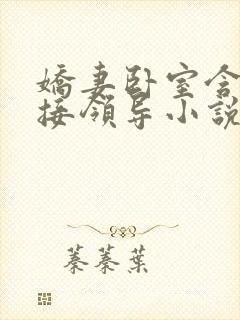 嬌妻卧室含
接領导小說
蓁蓁葉